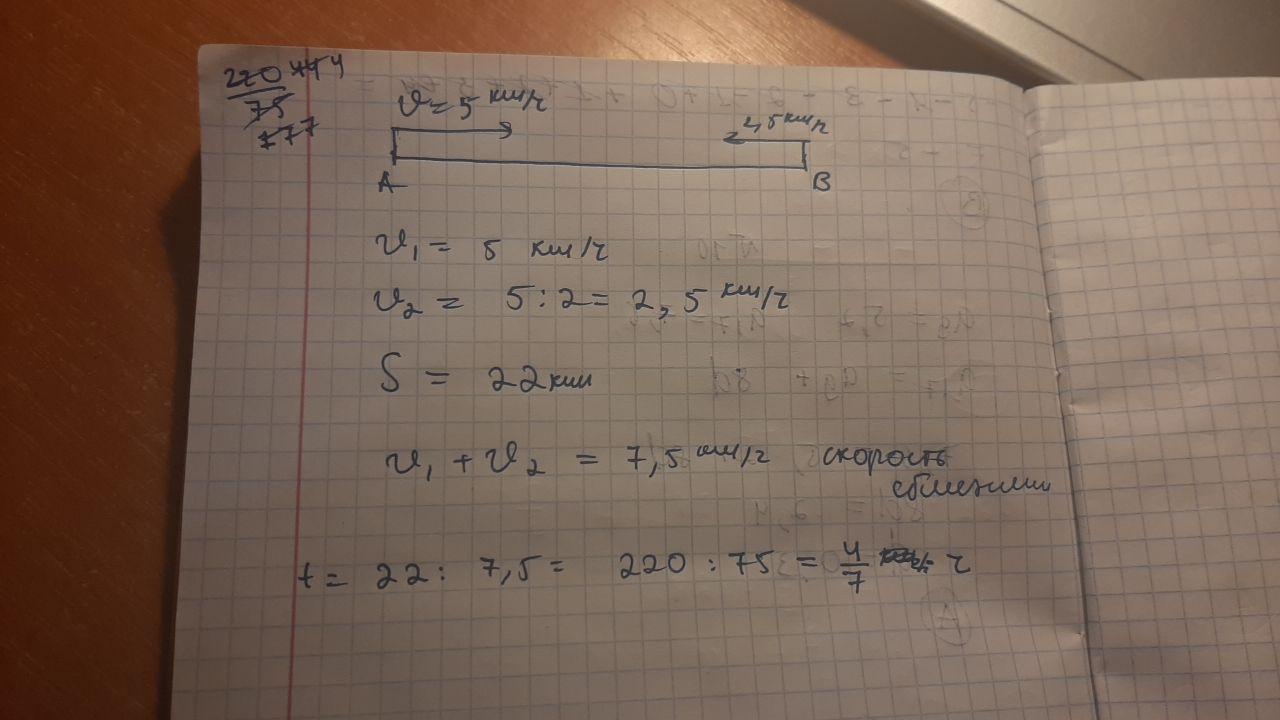 220 44 4
75
77 7
υ = 5 км/ч
2,5 км/ч
A
B
υ₁ = 5 км/ч
υ₂ = 5 : 2 = 2,5 км/ч
S = 22 км
υ₁ + υ₂ = 7,5 км/ч скорость
сближения
t = 22 : 7,5 = 220 : 75 = 4/7 ч